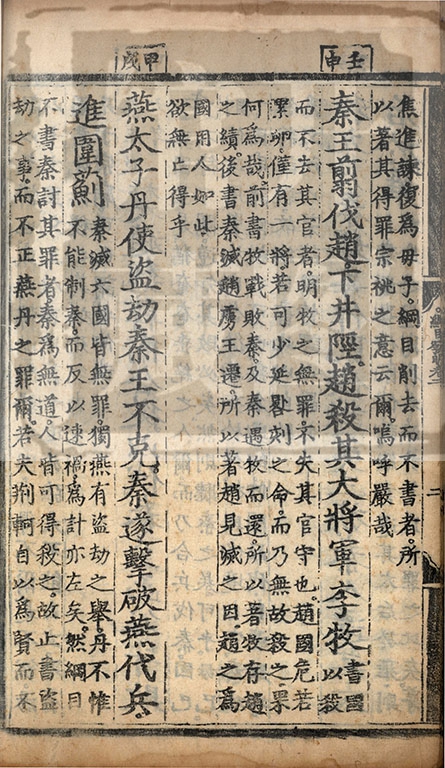 壬申
焦進諫復爲母子。綱目削去而不書者。所
以著其得罪宗祧之意云爾。嗚呼嚴哉
秦王翦伐趙下井陘。趙殺其大將軍李牧
書國
以殺
而不去其官者。明牧之無罪。不失其官守也。趙國危若
累卵。僅有一將。若可少延晷刻之命。而乃無故殺之。果
何爲哉。前書牧戰敗秦。及秦遇牧而還。所以著牧存趙
之績。後書秦滅趙。虜王遷。所以著趙見滅之因。趙之爲
國用人如此。
欲無亡得乎
甲戌
燕太子丹使盜劫秦王不克。秦遂擊破燕代兵。
進圍薊
秦滅六國皆無罪。獨燕有盜劫之舉。丹不惟
不能制秦。而反以速禍。爲計亦左矣。然綱目
不書秦討其罪者。秦爲無道。人皆可得殺之。故止書盜
劫之事。而不正燕丹之罪爾。若夫荊軻自以爲賢而不
二